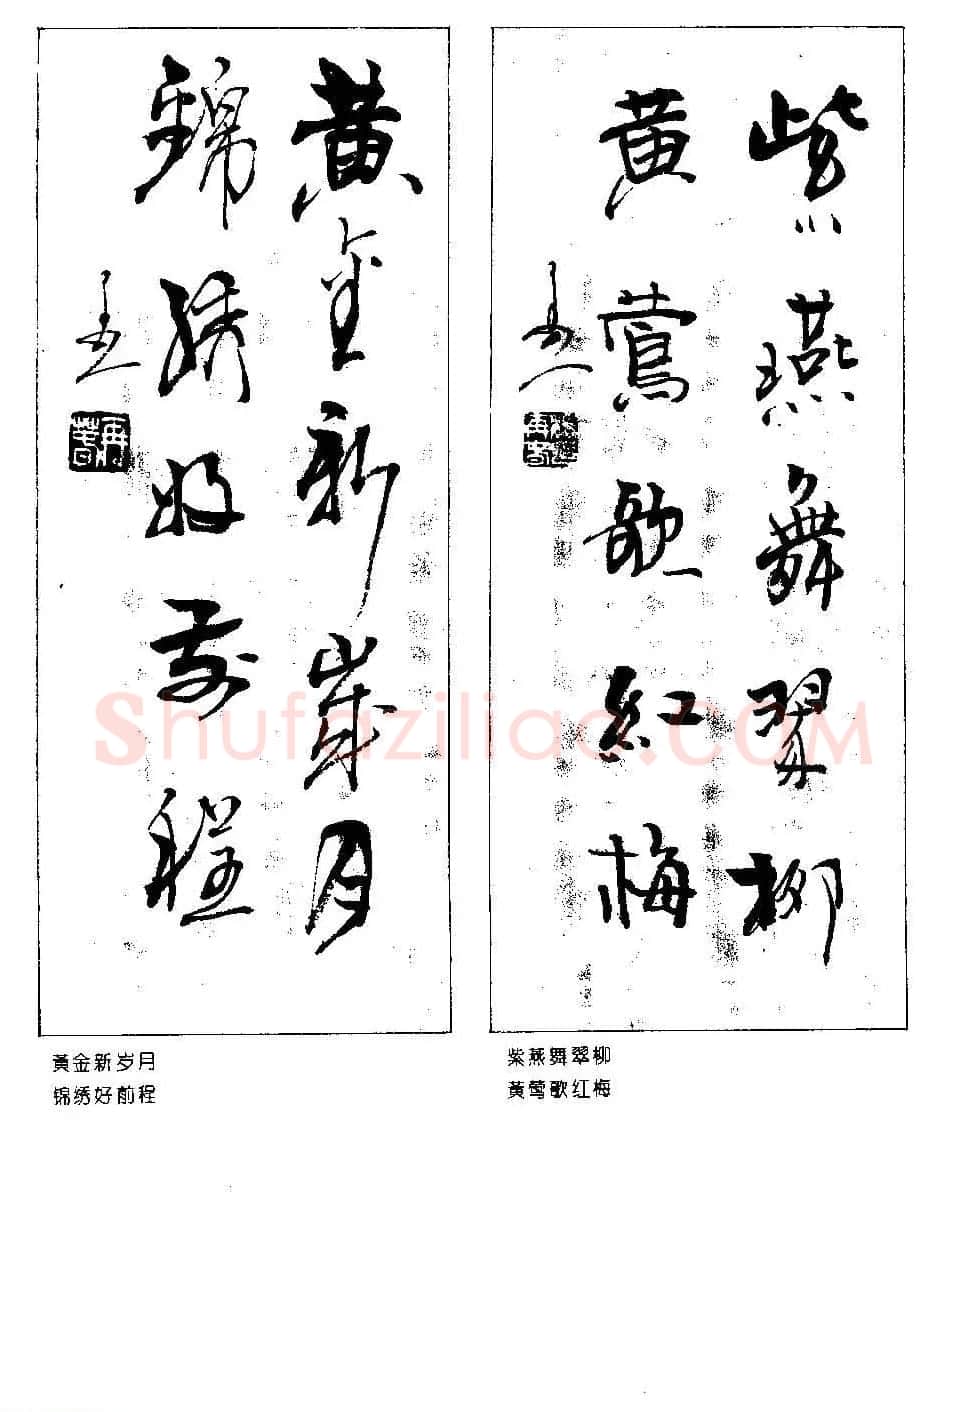 紫燕舞翠柳
黄莺歌红梅
黄金新岁月
锦绣好前程
紫燕舞翠柳
黄莺歌红梅
黄金新岁月
锦绣好前程
Shufaziliao.COM